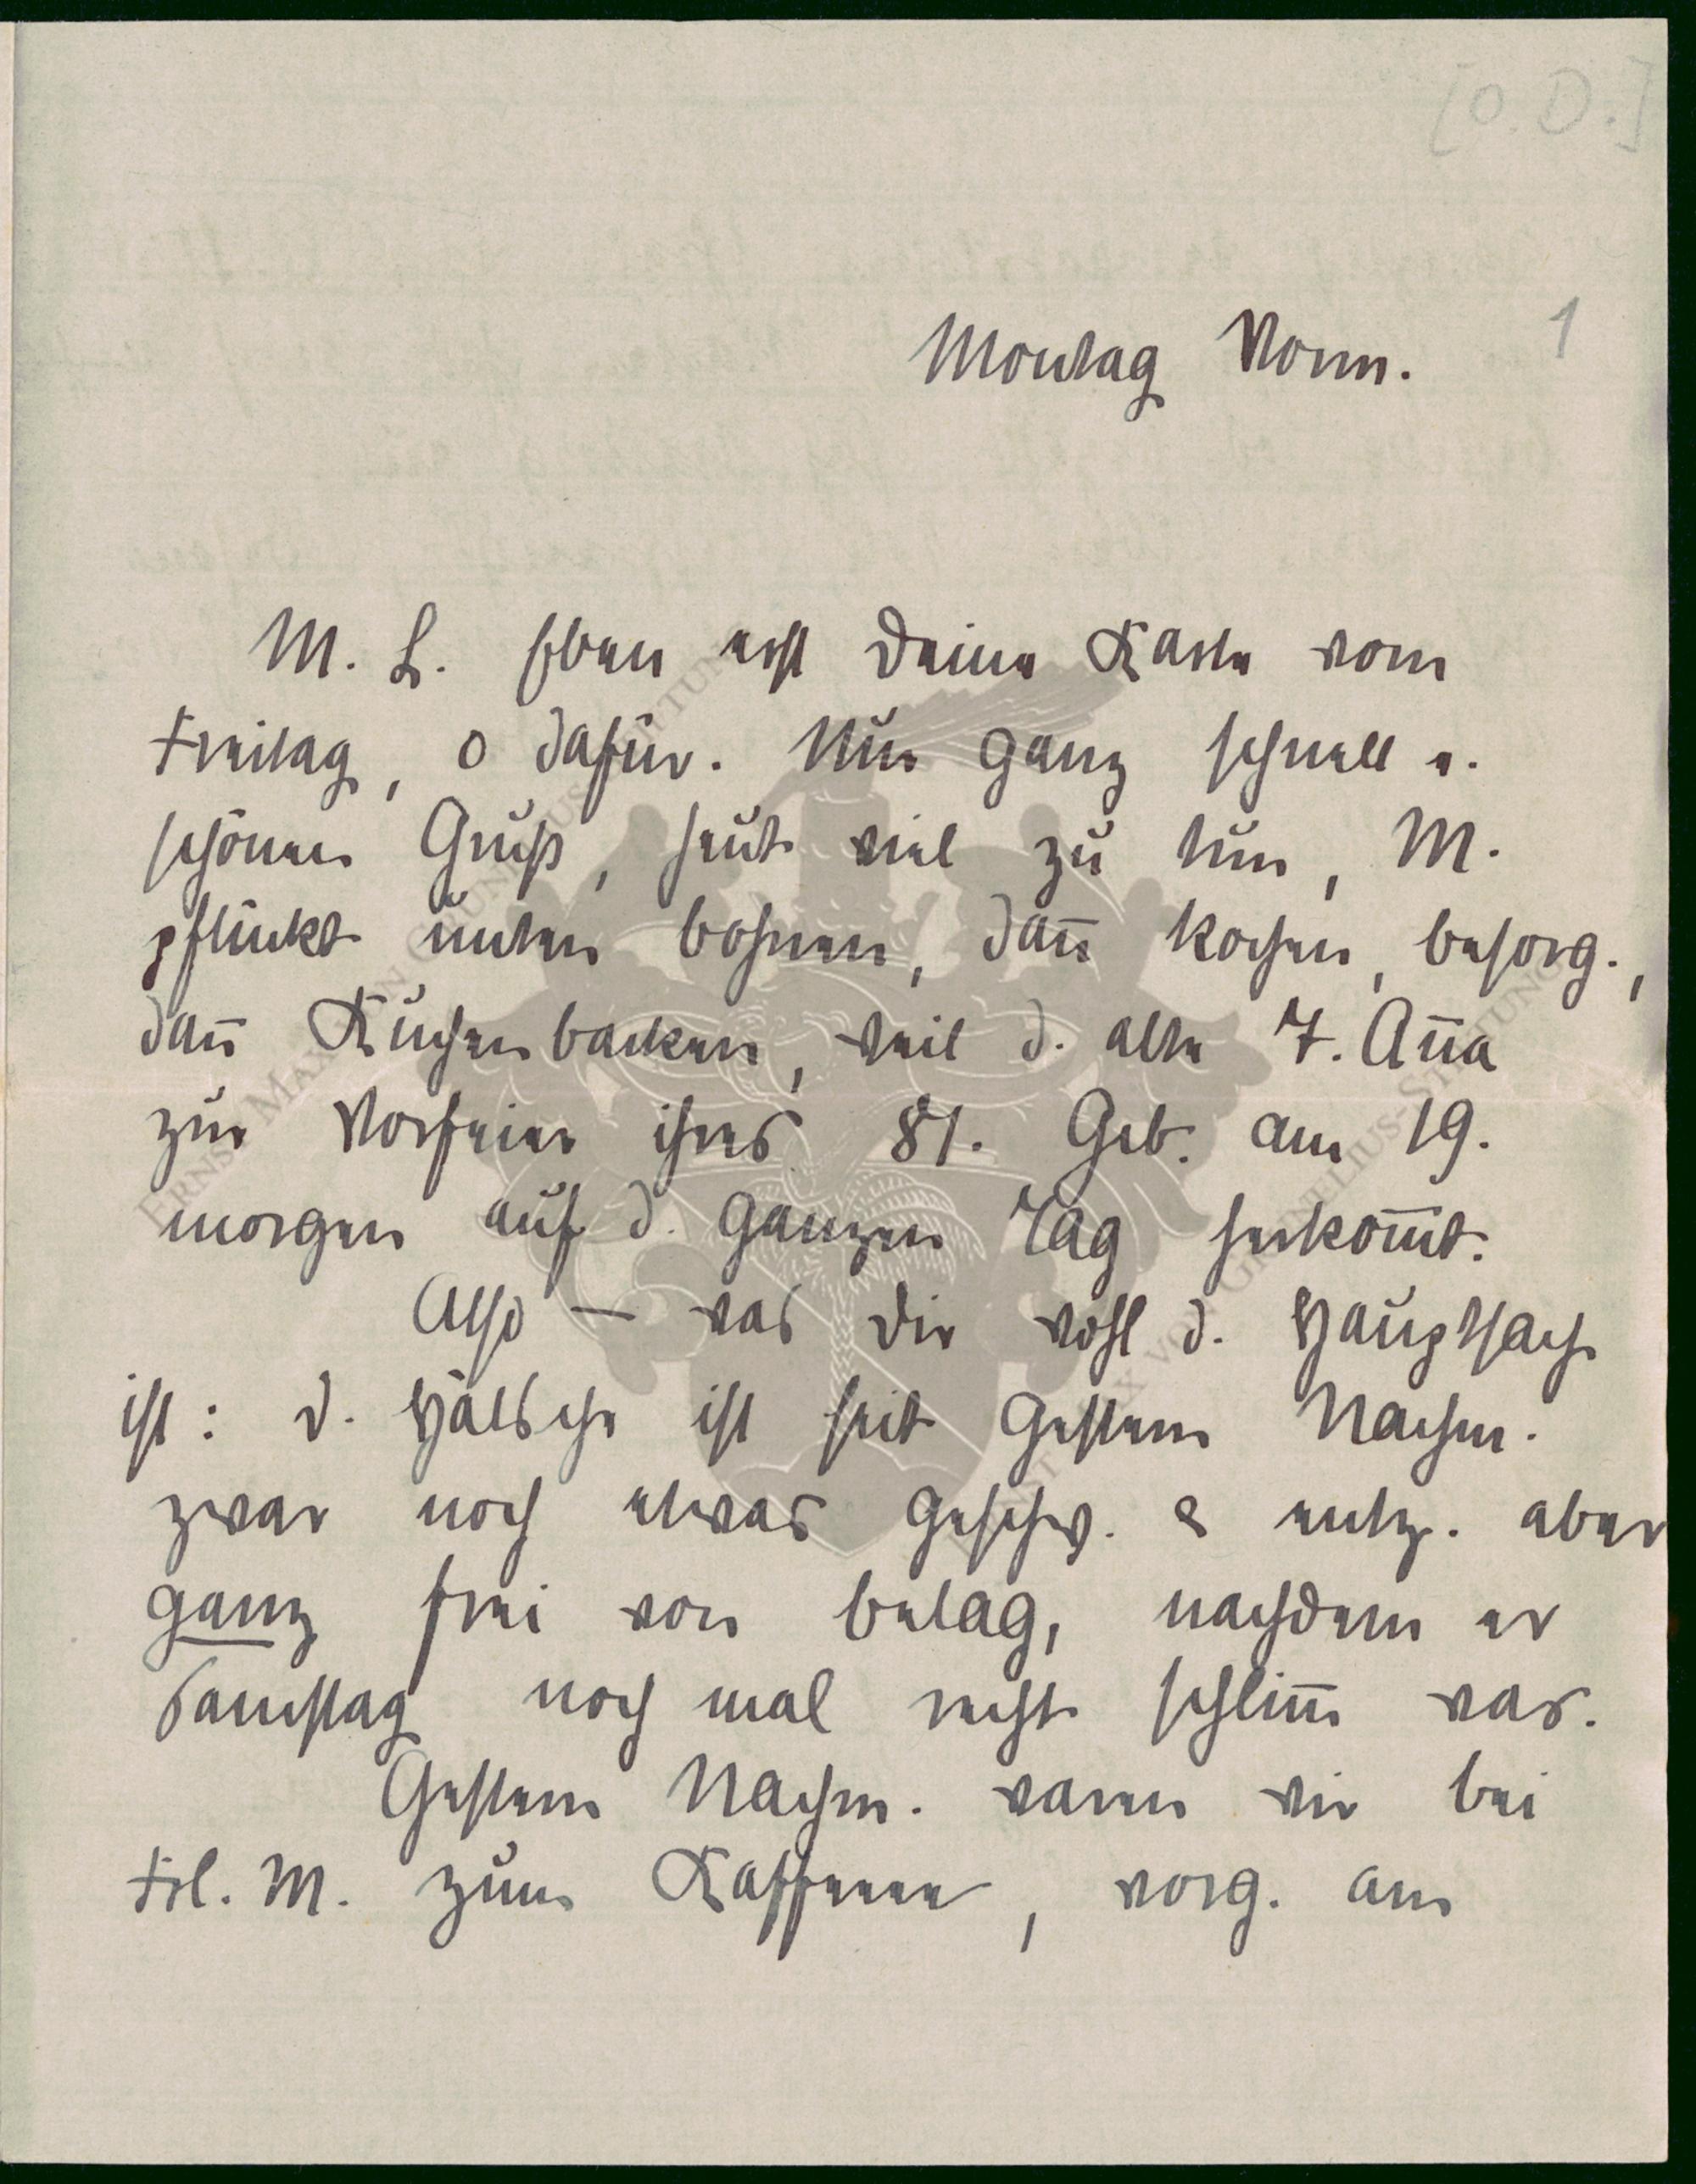 [O. D.]
Montag Vorm. 1
M. L. Eben erst Deine Karte vom
Freitag, o dafür. Nur ganz schnell e.
schönen Gruß, heut viel zu tun, M.
pflückt unten Bohnen, dan̄ kochen, besorg.,
dan̄ Kuchenbacken, weil d. alte T. An̄a
zur Vorfeier ihres 81. Geb. am 19.
morgen auf d. ganzen Tag herkom̄t.
Also — was Dir wohl d. Hauptsach
ist: d. Hälsche ist seit gestern Nachm.
zwar noch etwas geschw. & entz. aber
ganz frei von Belag, nachdem er
Samstag noch mal recht schlim̄ war.
Gestern Nachm. waren wir bei
Frl. M. zum Kaffeeee, vorg. am